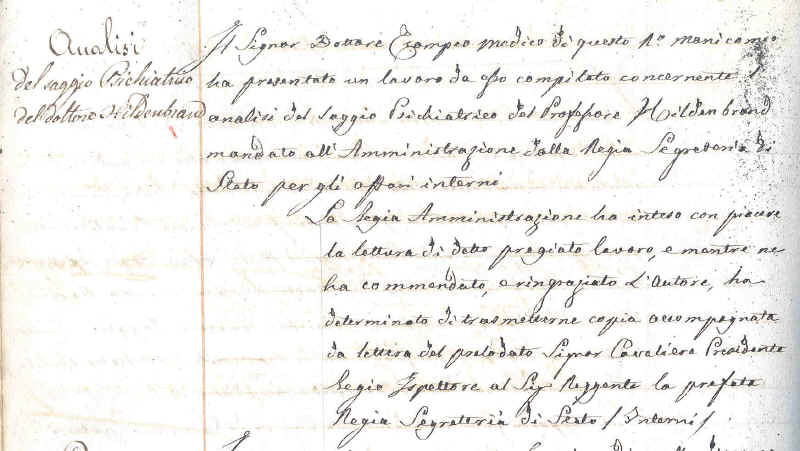 Analisi
del saggio Psichiatrico
del dottore Hildenbrand
Il Signor Dottore Trompeo medico di questo R.o Manicomio
ha presentato un lavoro da esso compilato concernente l'
analisi del saggio Psichiatrico del Professore Hildenbrand
mandato all'Amministrazione dalla Regia Segreteria di
Stato per gli affari interni
La Regia Amministrazione ha inteso con piacere
la lettura di detto pregiato lavoro, e mentre ne
ha commendato, e ringraziato l'Autore, ha
determinato di trasmetterne copia accompagnata
da lettera del prelodato Signor Cavaliere Presidente
Regio Ispettore al Sig. Reggente la prefata
Regia Segreteria di Stato / Interni /.